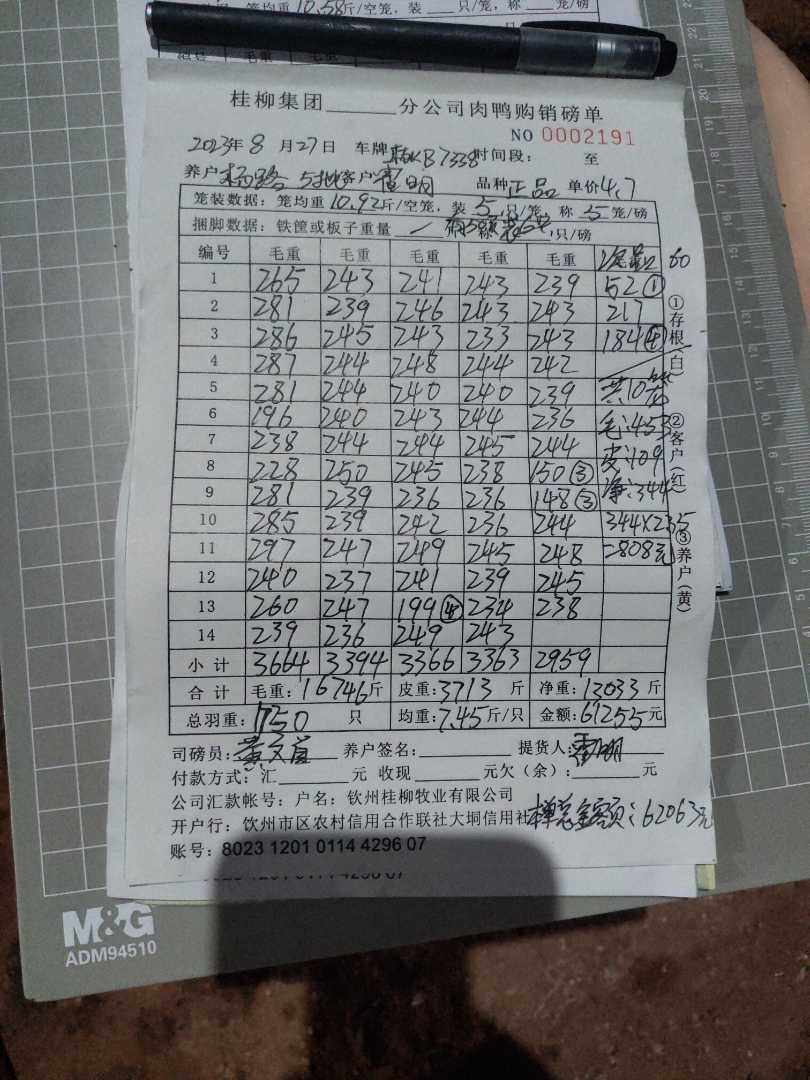 笼均重10.58斤/空笼，装 只/笼，称 笼/磅
桂柳集团 分公司肉鸭购销磅单
NO 0002191
2023年8月27日 车牌 KB7338 时间段： 至
养户 杨路 5批 客户 明 品种 正品 单价 4.7
笼装数据：笼均重 10.92 斤/空笼，装 5 只/笼，称 5 笼/磅
捆脚数据：铁筐或板子重量 只/磅
编号 毛重 毛重 毛重 毛重 毛重 60
1 265 243 241 243 239 52①
2 281 239 246 243 243 217
3 286 245 243 233 243 184④
4 287 244 248 244 242
5 281 244 240 240 239 共10笼
6 196 240 243 244 236 毛:453
7 238 244 244 245 244 皮:109
8 228 250 245 238 150③ 净:344
9 281 239 236 236 148③
10 285 239 242 236 244 344×2.35
11 297 247 249 245 248 =808元
12 240 237 241 239 245
13 260 247 199④ 234 238
14 239 236 249 243
小计 3664 3394 3366 3363 2959
合计 毛重：16746斤 皮重：3713斤 净重：13033斤
总羽重：1750 只 均重：7.45斤/只 金额：61255元
①存根(白) ②客户(红) ③养户(黄)
司磅员：黄文首 养户签名： 提货人： 明
付款方式：汇 元 收现 元欠（余）： 元
公司汇款帐号：户名：钦州桂柳牧业有限公司
开户行：钦州市区农村信用合作联社大垌信用社 总金额：62063元
账号：8023 1201 0114 4296 07
M&G
ADM94510